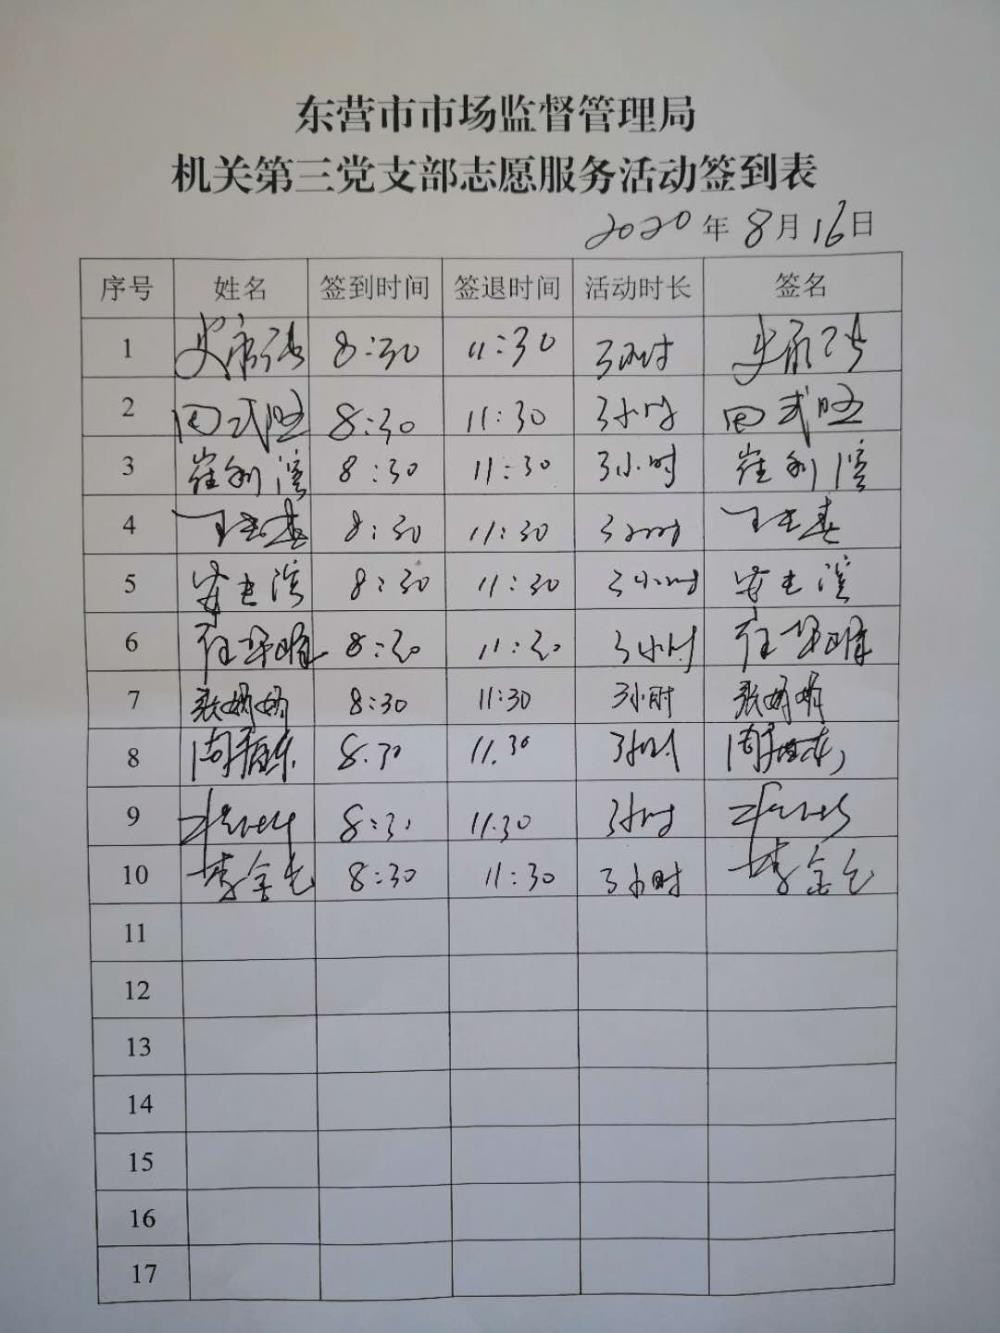 东营市市场监督管理局
机关第三党支部志愿服务活动签到表
2020年8月16日
序号 姓名 签到时间 签退时间 活动时长 签名
1 8:30 11:30 3小时
2 田武 8:30 11:30 3小时 田武
3 崔利滨 8:30 11:30 3小时 崔利滨
4 8:30 11:30 3小时
5 8:30 11:30 3小时
6 8:30 11:30 3小时
7 张娟娟 8:30 11:30 3小时 张娟娟
8 周 8:30 11:30 3小时 周
9 8:30 11:30 3小时
10 李金 8:30 11:30 3小时 李金
11
12
13
14
15
16
17